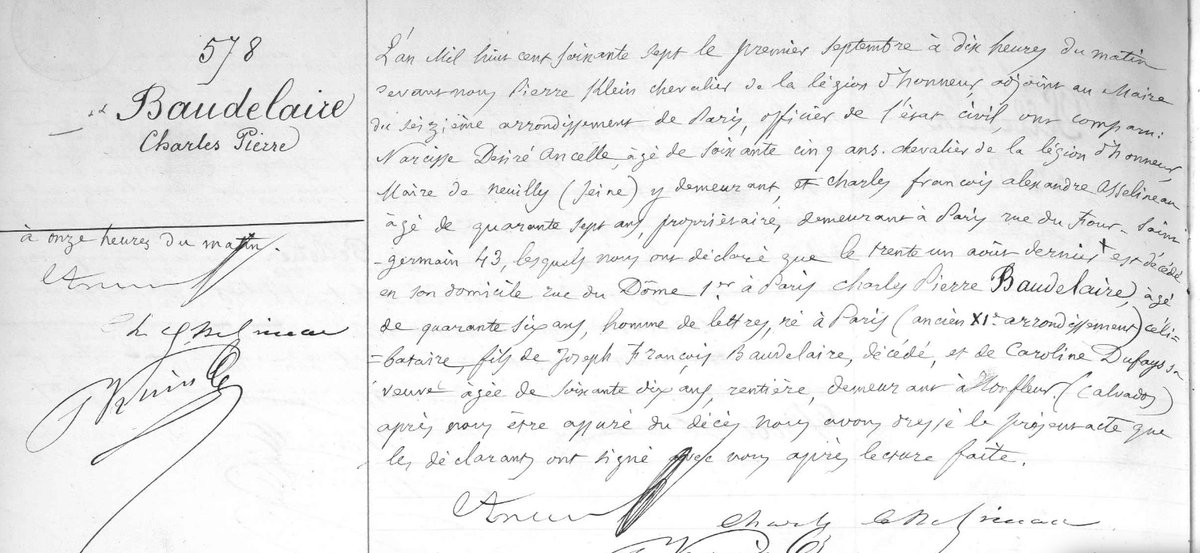 578
Baudelaire
Charles Pierre
à onze heures du matin.
L'an mil huit cent soixante sept le premier septembre à dix heures du matin
devant nous Pierre Klein chevalier de la légion d'honneur adjoint au Maire
du seizième arrondissement de Paris, officier de l'état civil, ont comparu:
Narcisse Desiré Ancelle, âgé de soixante cinq ans. chevalier de la légion d'honneur,
Maire de Neuilly (Seine) y demeurant, et Charles françois alexandre Asselineau
âgé de quarante sept ans, propriétaire, demeurant à Paris rue du Four-Saint
-germain 43, lesquels nous ont déclaré que le trente un août dernier + est décédé
en son domicile rue du Dôme 1er à Paris Charles Pierre Baudelaire, âgé
de quarante six ans, homme de lettres, né à Paris (ancien XIe arrondissement) céli-
-bataire, fils de Joseph François Baudelaire, décédé, et de Caroline Dufays sa
veuve âgée de soixante dix ans, rentière, demeurant à Honfleur. (Calvados)
après nous être assuré du décès nous avons dressé le présent acte que
les déclarants ont signé avec nous après lecture faite.